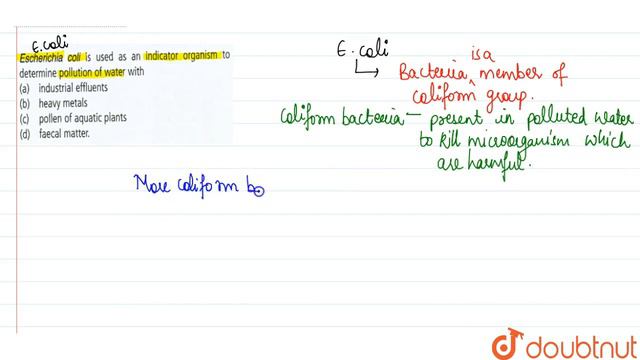 E.coli
Escherichia coli is used as an indicator organism to
determine pollution of water with
(a) industrial effluents
(b) heavy metals
(c) pollen of aquatic plants
(d) faecal matter.
E. coli
is a
Bacteria, member of
coliform group.
coliform bacteria — present in polluted water
to kill microorganism which
are harmful.
More coliform b
doubtnut